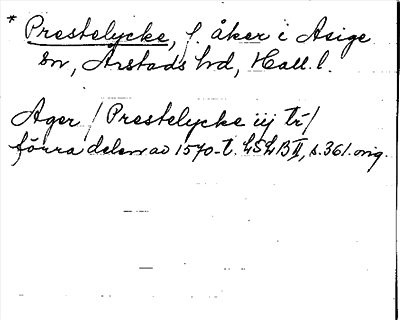 * Prestelycke, f. åker i Asige
sn, Årstads hd, Hall. l.
Ager / Prestelycke iij tr /
förra delen av 1570-t. LSLB II, s. 361. orig.